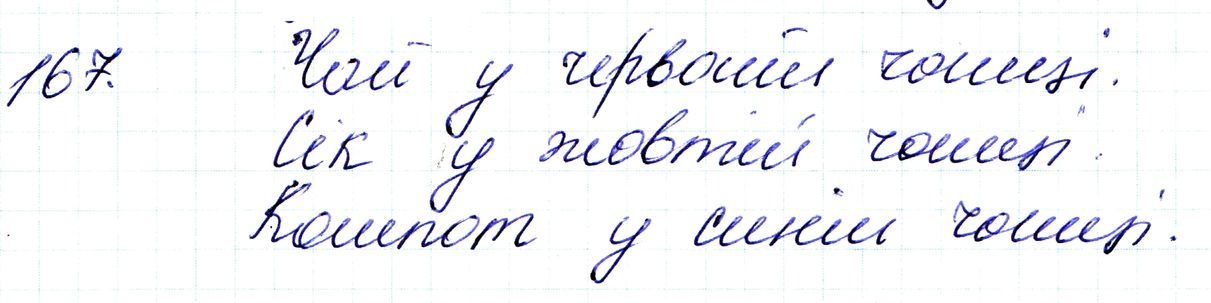 167. Чай у червоній чашці.
Сік у жовтій чашці.
Компот у синій чашці.